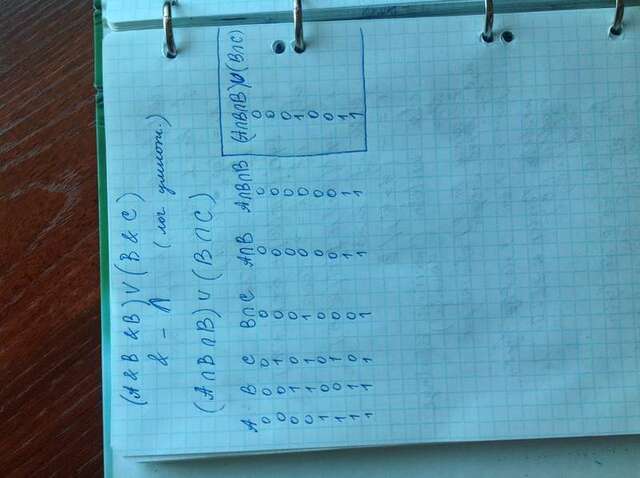 (A & B & B) V (B & C)
& - Λ (лог. умнож.)
(A ∩ B ∩ B) ∪ (B ∩ C)
A B C B∩C A∩B A∩B∩B (A∩B∩B)∪(B∩C)
0 0 0 0 0 0 0
0 0 1 0 0 0 0
0 1 0 0 0 0 0
0 1 1 1 0 0 1
1 0 0 0 0 0 0
1 0 1 0 0 0 0
1 1 0 0 1 1 1
1 1 1 1 1 1 1